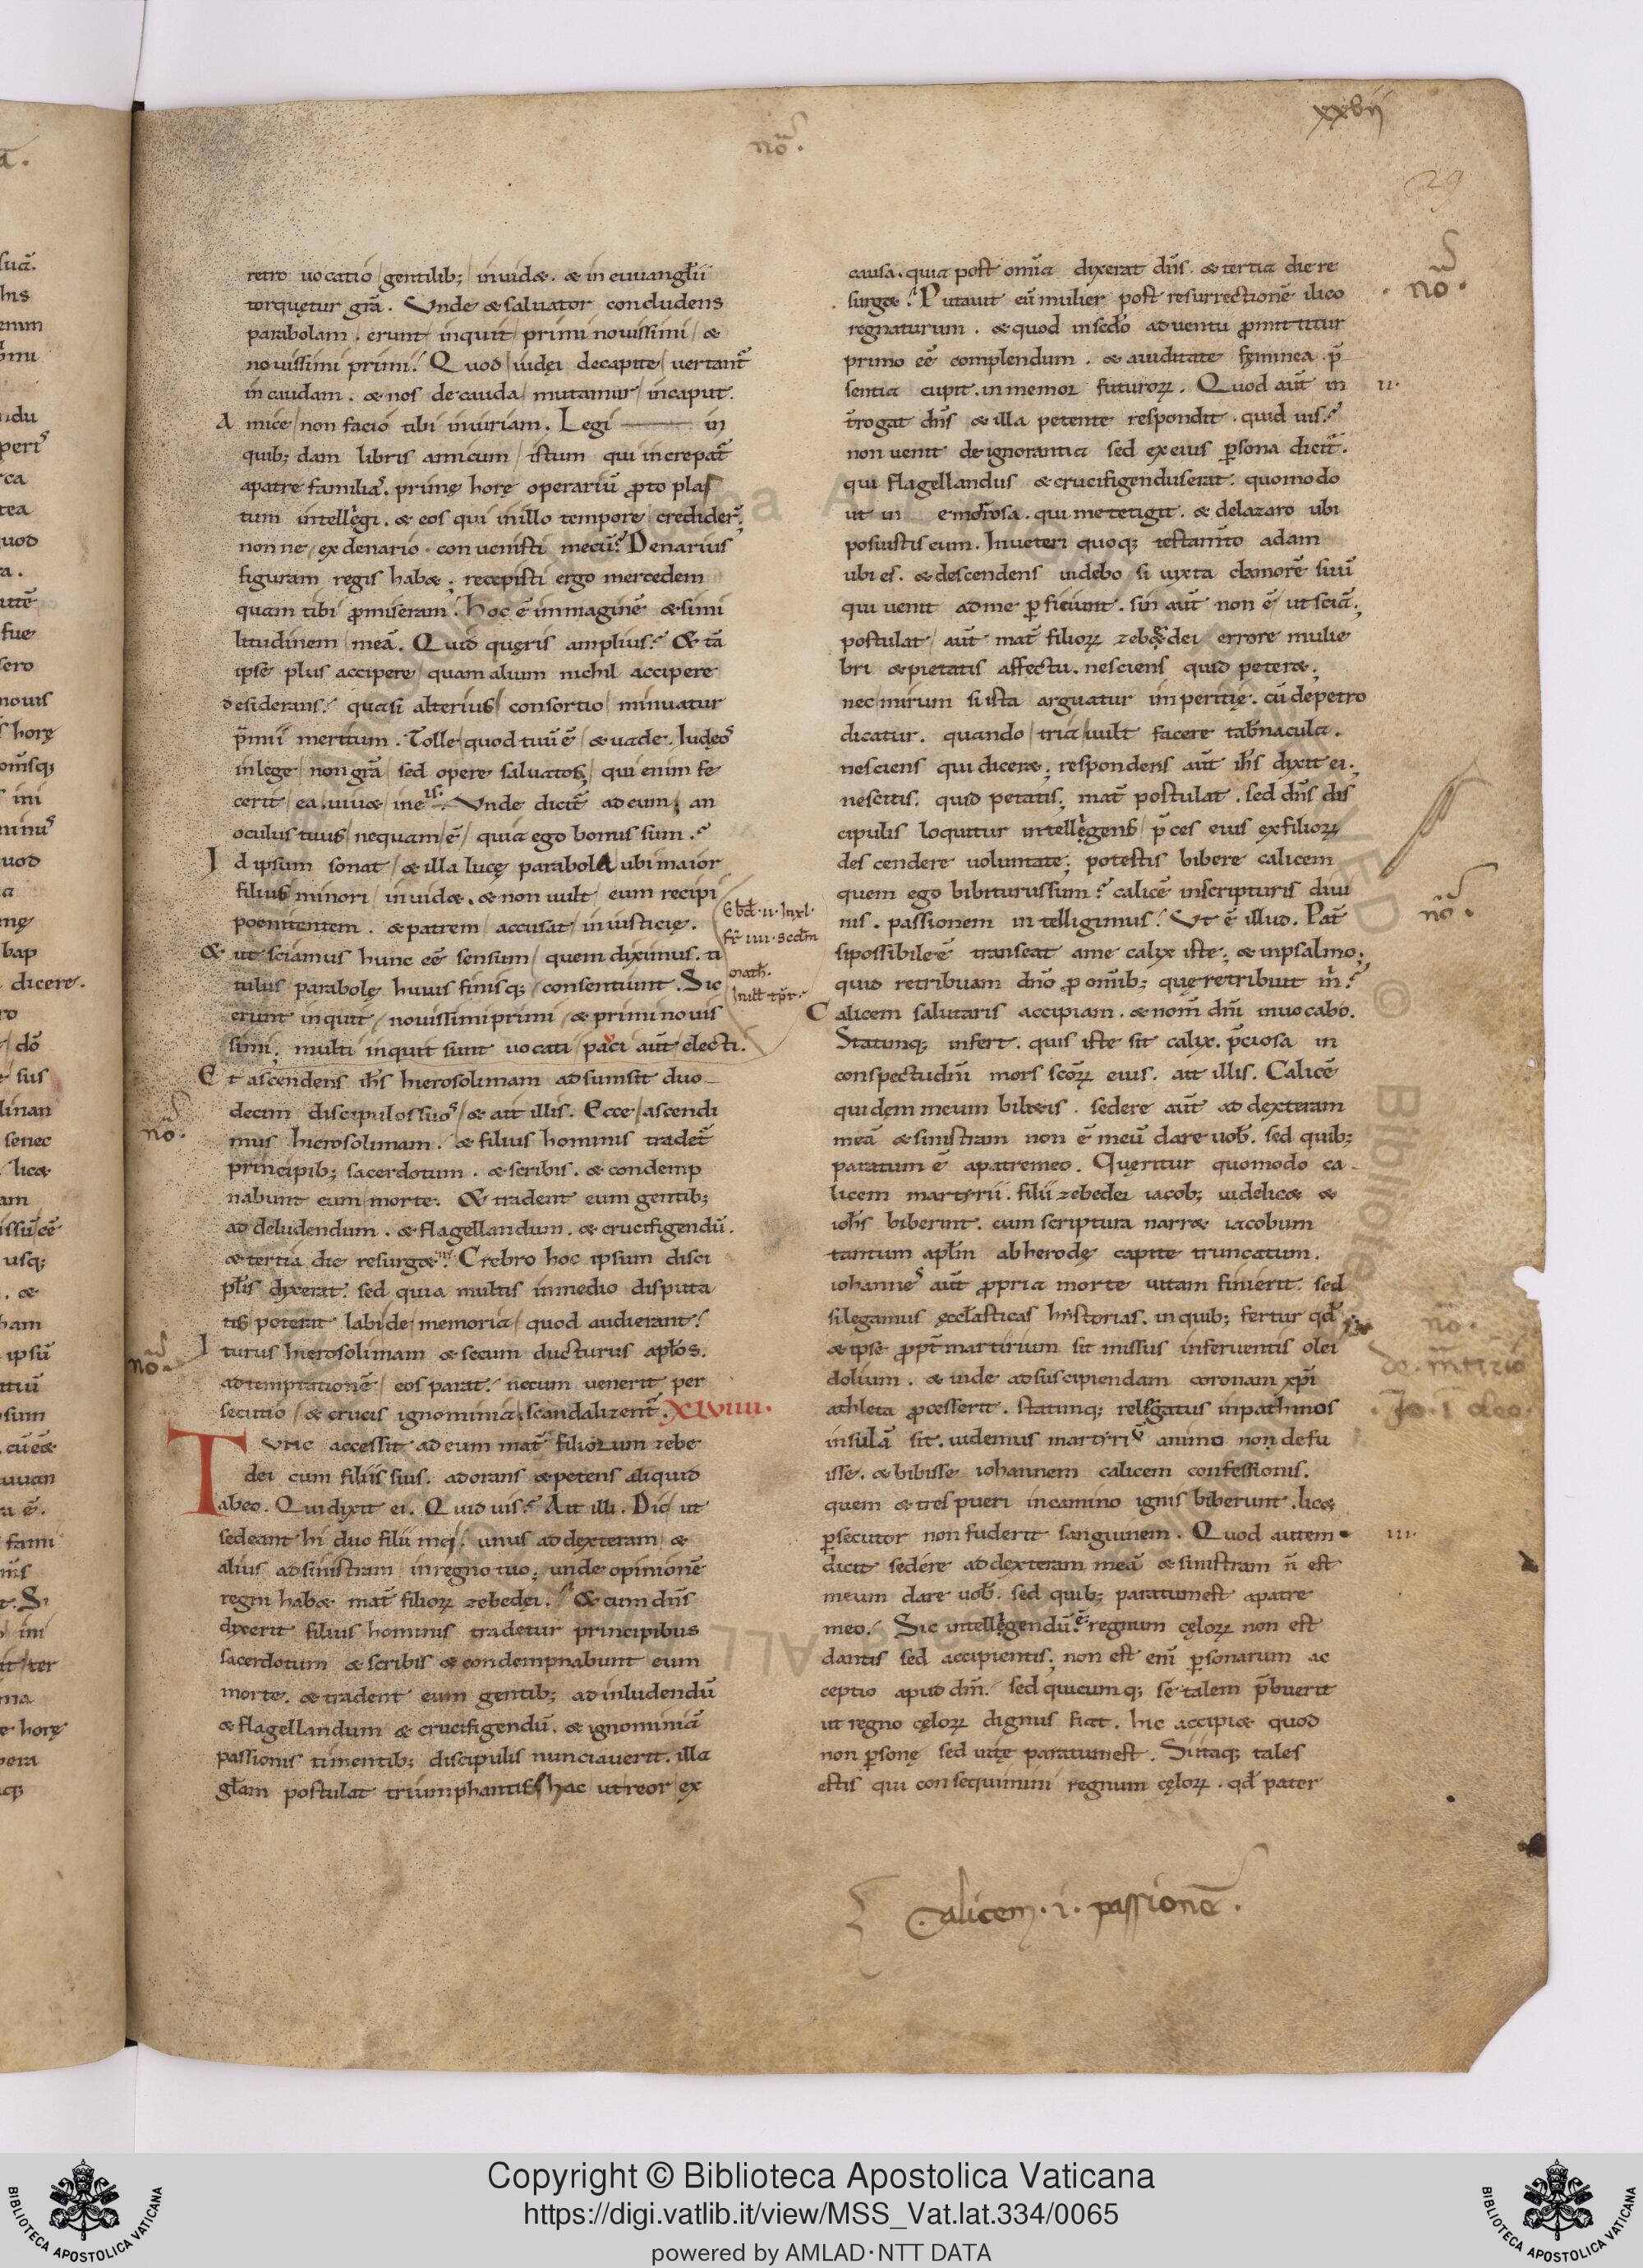 xxvij
29
nō.
retro uocatio gentilib; inuidæ. & in euuangłii
torquetur grā. Vnde & saluator concludens
parabolam. erunt inquit primi nouissimi / &
nouissimi primi. Quod iudei de capite uertant̄
in caudam. & nos de cauda mutamur in caput.
Amice non facio tibi iniuriam. Legi in
quib;dam libris amicum istum qui increpat̄
a patre familias. prime hore operariū ꝓtoplas
tum intellegi. & eos qui in illo tempore credider̄.
nonne ex denario conuenisti mecū? Denarius
figuram regis habæ; recepisti ergo mercedem
quam tibi ꝓmiseram. hoc ē immaginē & simi
litudinem meā. Quid queris amplius? & tā
ipse plus accipere quam alium nichil accipere
desiderans. quasi alterius consortio minuatur
p̄mii meritum. Tolle quod tuū ē / & uade. Iudeos
in lege non grā sed opere saluatos, qui enim fe
cerit ea uiuæ in eis. Vnde dicit̄ ad eum; an
oculus tuus nequam ē / quia ego bonus sum.?
Id ipsum sonat & illa luce parabola ubi maior
filius minori inuidæ. & non uult eum recipi
poenitentem. & patrem accusat iniusticie.
& ut sciamus hunc eē sensum quem diximus. ti
tulus parabole huius finisq; consentiunt. Sic
erunt inquit nouissimi primi & primi nouis
simi; multi inquit sunt uocati pauci aūt electi.
Et ascendens ih̄s hierosolimam adsumsit duo
decim discipulos suos & ait illis. Ecce ascendi
mus hierosolimam. & filius hominis tradet̄
principib; sacerdotum. & scribis. & condemp
nabunt eum morte. & tradent eum gentib;
ad deludendum. & flagellandum. & crucifigendū.
& tertia die resurgæ. Crebro hoc ipsum disci
płis dixerat. sed quia multis in medio disputa
tis poterat labi de memoria quod audierant.
Iturus hierosolimam & secum ducturus apłos.
ad temptationē eos parat. ne cum uenerit per
secutio & crucis ignominia scandalizent̄. XLVIIII.
Tunc accessit ad eum mat̄ filiorum zebe
dei cum filiis suis. adorans & petens aliquid
ab eo. Qui dixit ei. Quid uis? Ait illi. Dic ut
sedeant hi duo filii mei. unus ad dexteram &
alius ad sinistram in regno tuo; unde opinionē
regni habæ mat̄ filioꝝ zebedei.? & cum dn̄s
dixerit filius hominis tradetur principibus
sacerdotum & scribis & condempnabunt eum
morte. & tradent eum gentib; ad inludendū
& flagellandum & crucifigendū. & ignominiā
passionis timentib; discipulis nunciauerit. illa
głam postulat triumphantis hac ut reor ex
causa. quia post omīa dixerat dn̄s. & tertia die re
surgæ? Putauit eū mulier post resurrectionē ilico
regnaturum. & quod in sed̄o aduentu ꝓmittitur
primo eē complendum. & auiditate feminea p̄
sentia cupit. inmemor futuroꝝ. Quod aūt in
t̄rogat dn̄s & illa petente respondit. quid uis?
non uenit de ignorantia sed ex eius ꝑsona dicit̄.
qui flagellandus & crucifigendus erat. quomodo
ut in emorrosa. qui me tetigit. & de lazaro ubi
posuistis eum. In ueteri quoq; testam̄to adam
ubi es. & descendens uidebo si iuxta clamorē suū
qui uenit ad me ꝑficiunt. sin aūt non ē / ut sciā;
postulat aūt mat̄ filioꝝ zebedei errore mulie
bri & pietatis affectu. nesciens quid peteræ;
nec mirum si ista arguatur imperitie. cū de petro
dicatur. quando tria uult facere tab̄nacula.
nesciens qui diceræ; respondens aūt ih̄s dixit ei.
nescitis. quid petatis; mat̄ postulat. sed dn̄s dis
cipulis loquitur intellegens p̄ces eius ex filioꝝ
descendere uoluntate; potestis bibere calicem
quem ego bibiturus sum? calicē in scripturis diui
nis. passionem intelligimus. Vt ē illud. Pat̄
si possibile ē transeat a me calix iste; & in psalmo;
quid retribuam dn̄o ꝓ omīb; que retribuit m̄?
Calicem salutaris accipiam. & nom̄ dn̄i inuocabo.
Statimq; infert. quis iste sit calix. p̄ciosa in
conspectu dn̄i mors sc̄oꝝ eius. ait illis. Calicē
quidem meum bibetis. sedere aūt ad dexteram
meā & sinistram non ē meū dare uob̄. sed quib;
paratum ē a patre meo. Queritur quomodo ca
licem martyrii. filii zebedei iacob; uidelicæ &
ioh̄s biberint. cum scriptura narræ iacobum
tantum apłm ab herode capite truncatum.
iohannes aūt ꝓpria morte uitam finierit. sed
si legamus eccłasticas historias. in quib; fertur qđ
& ipse ꝓpt̄ martirium sit missus in feruentis olei
dolium. & inde ad suscipiendam coronam xp̄i
athleta ꝓcesserit. statimq; relegatus in pathmos
insulā sit. uidemus martyrio animo non defu
isse. & bibisse iohannem calicem confessionis.
quem & tres pueri in camino ignis biberunt. licæ
ꝑsecutor non fuderit sanguinem. Quod autem
dicit sedere ad dexteram meā & sinistram n̄ est
meum dare uob̄. sed quib; paratum est a patre
meo. Sic intellegendū ē. regnum celoꝝ non est
dantis sed accipientis; non est enī ꝑsonarum ac
ceptio apud dm̄. sed quicumq; se talem p̄buerit
ut regno celoꝝ dignus fiat. hic accipiæ quod
non ꝑsone sed uite paratum est. Si itaq; tales
estis qui consequimini regnum celoꝝ. qđ pater
nō.
nō.
nō.
nō.
nō.
.ii.
.iii.
Calicem .i. passionē.
Copyright © Biblioteca Apostolica Vaticana
https://digi.vatlib.it/view/MSS_Vat.lat.334/0065
powered by AMLAD·NTT DATA
BIBLIOTECA APOSTOLICA VATICANA
BIBLIOTECA APOSTOLICA VATICANA